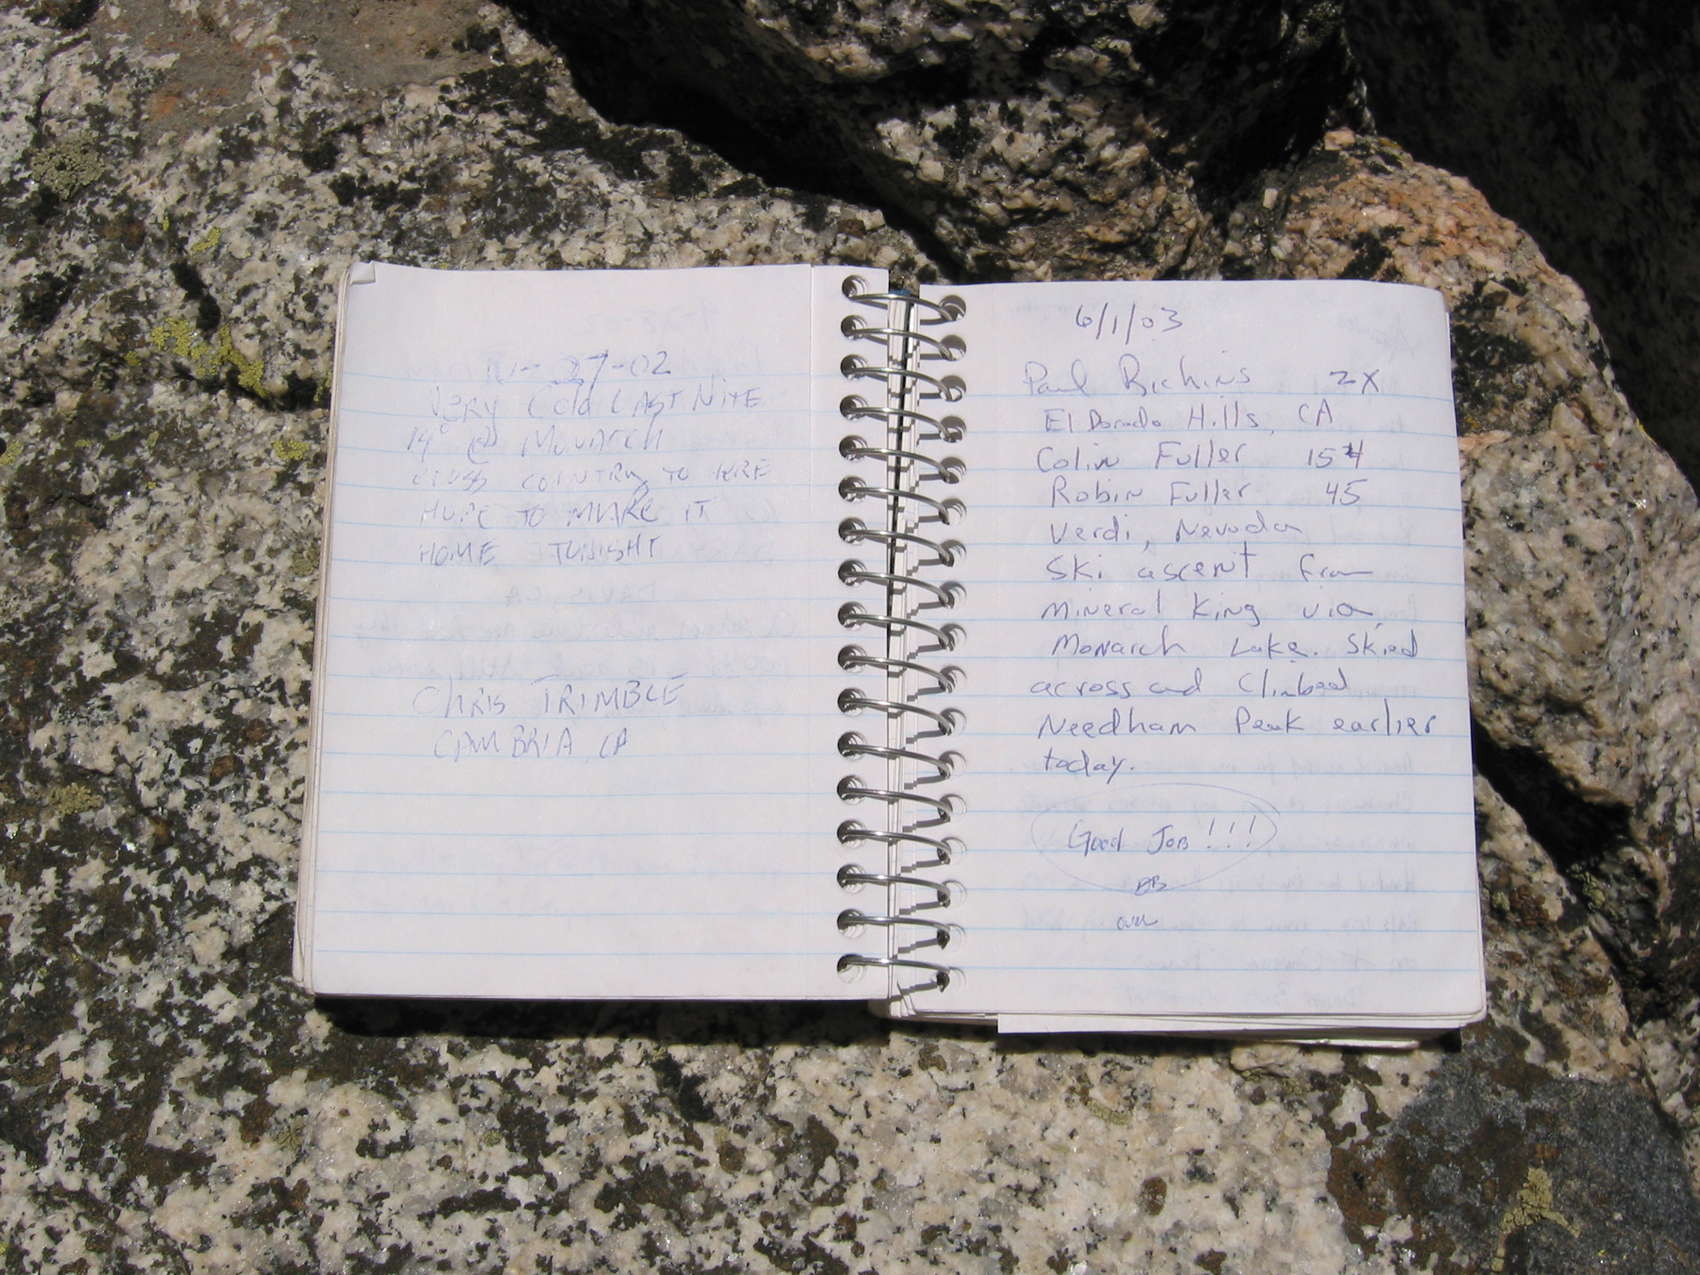 27-02
VERY Cold LAST NITE
14° @ MONARCH
CROSS COUNTRY TO HERE
HOPE TO MAKE IT
HOME TONIGHT
CHRIS TRIMBLE
CAMBRIA, CA
6/1/03
Paul Richins 2X
El Dorado Hills, CA
Colin Fuller 154
Robin Fuller 45
Verdi, Nevada
Ski ascent from
Mineral King via
Monarch Lake. Skied
across and Climbed
Needham Peak earlier
today.
Good Job!!!